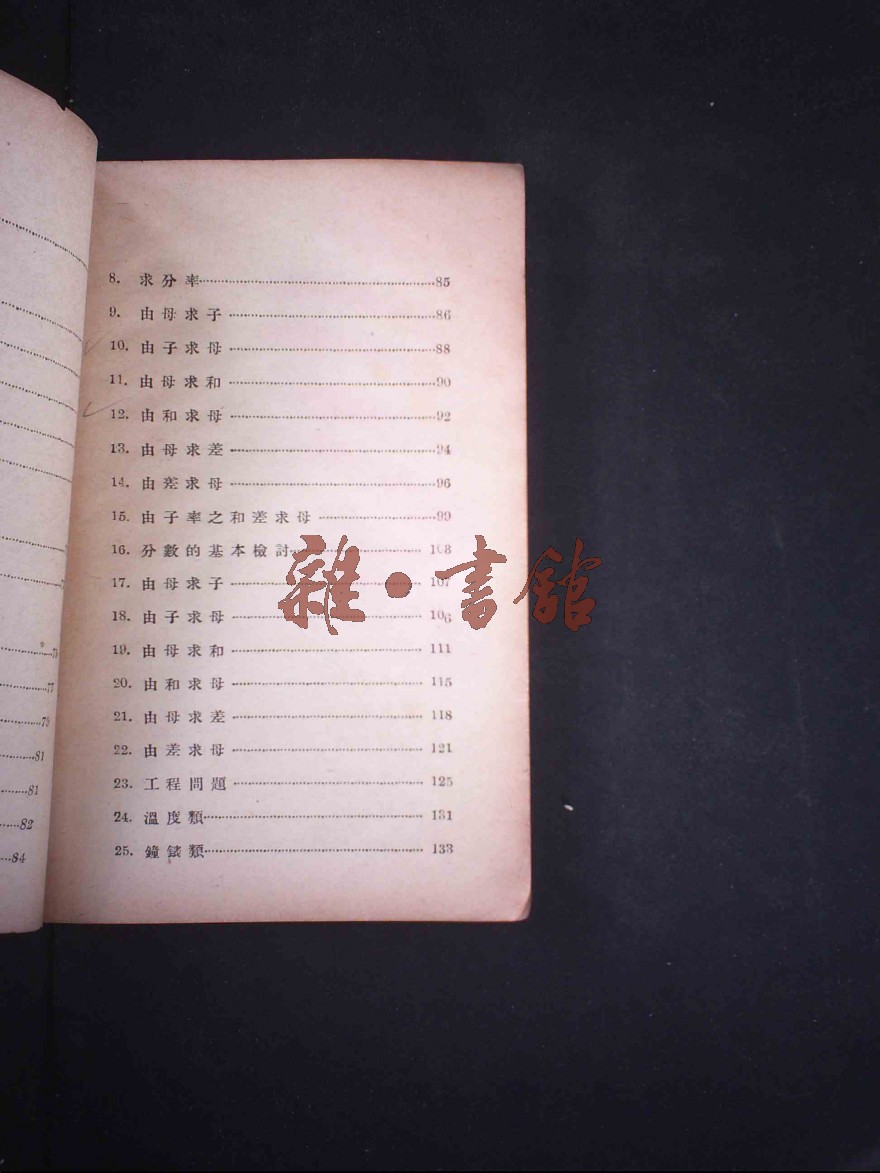 77
79
81
81
82
84
8. 求分率 85
9. 由母求子 86
10. 由子求母 88
11. 由母求和 90
12. 由和求母 92
13. 由母求差 94
14. 由差求母 96
15. 由子率之和差求母 99
16. 分數的基本檢討 103
17. 由母求子 107
18. 由子求母 106
19. 由母求和 111
20. 由和求母 115
21. 由母求差 118
22. 由差求母 121
23. 工程問題 125
24. 溫度類 131
25. 鐘錶類 133
雜·書館